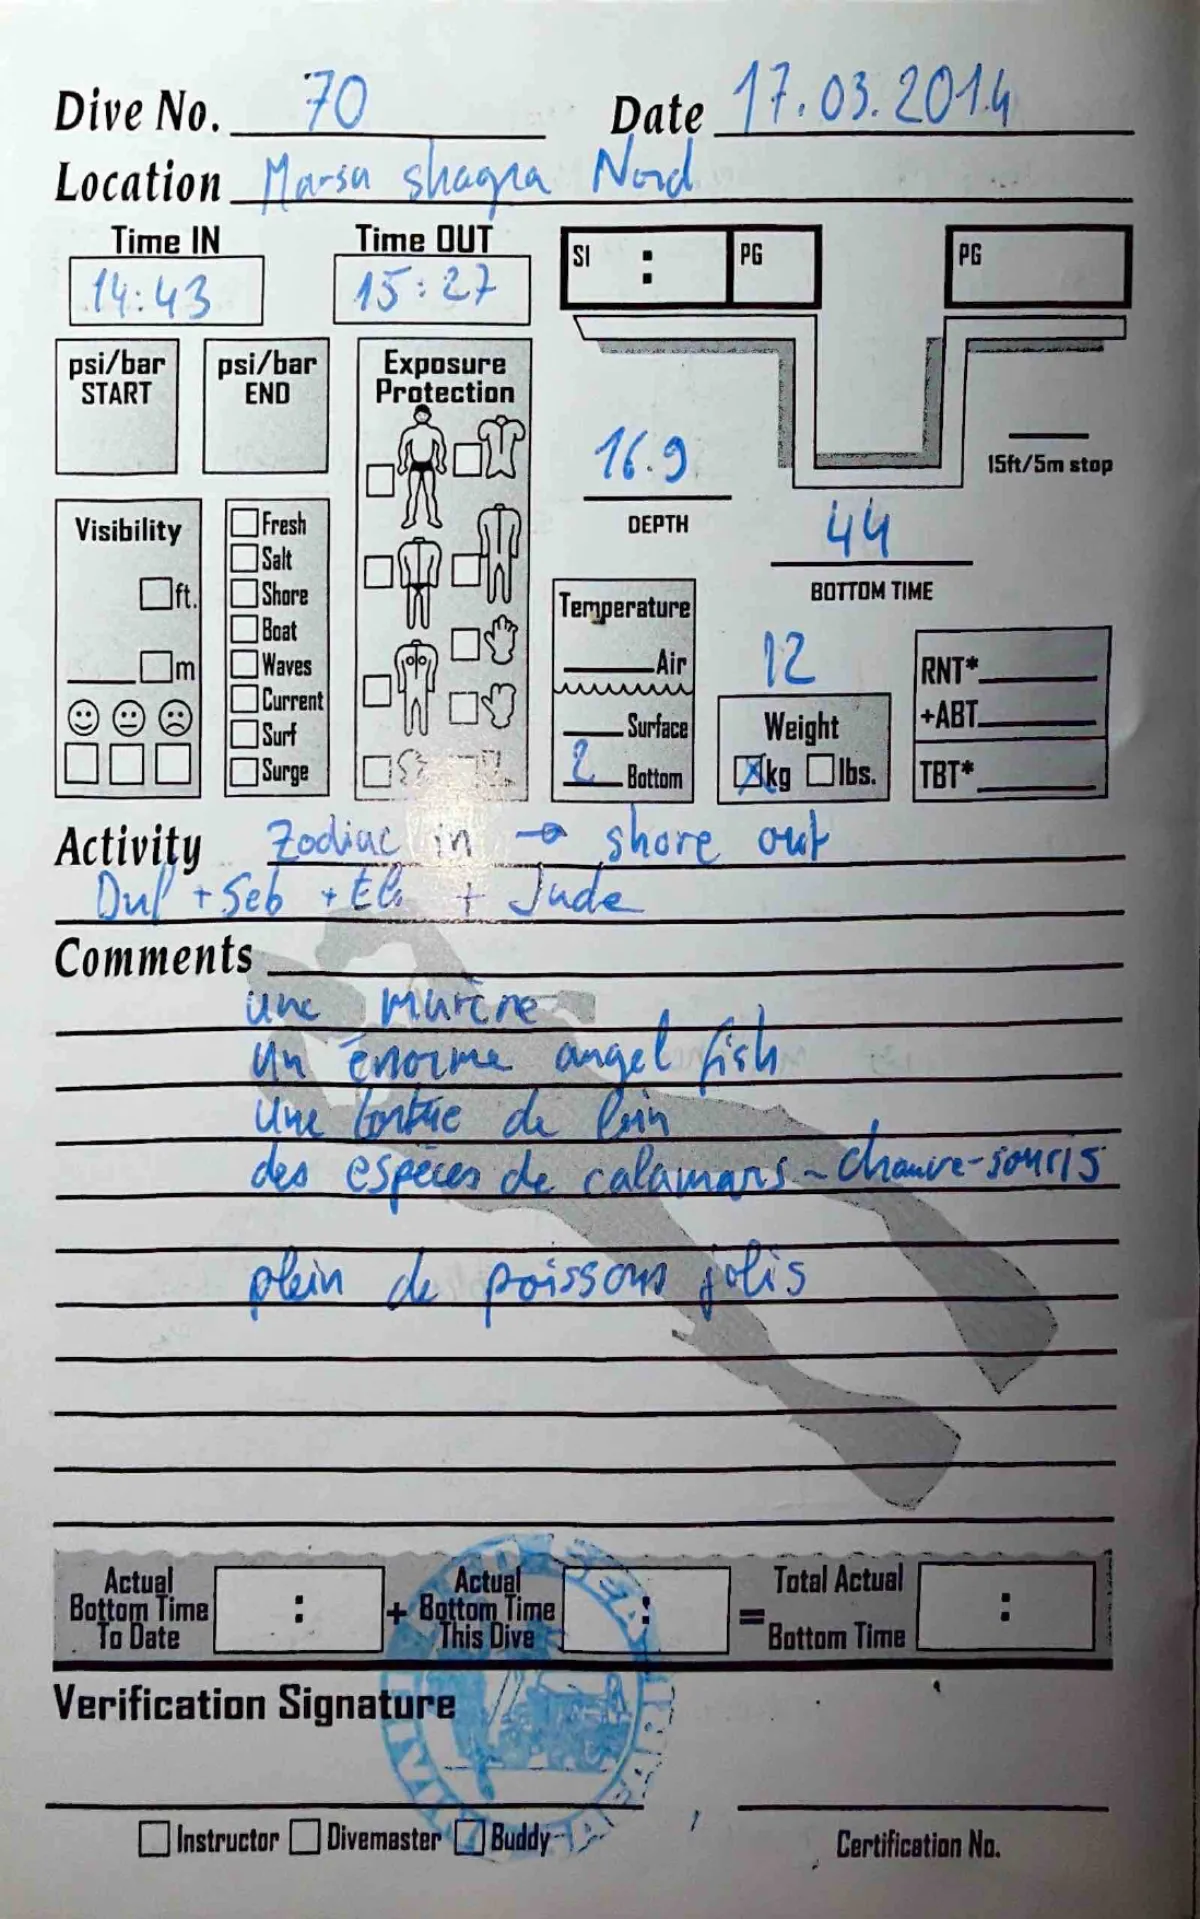 Dive No. 70 Date 17.03.2014
Location Marsa shagra Nord
Time IN Time OUT
14:43 15:27
SI : PG PG
psi/bar START psi/bar END
Exposure Protection
16.9
DEPTH
15ft/5m stop
44
BOTTOM TIME
Visibility
ft.
m
Fresh
Salt
Shore
Boat
Waves
Current
Surf
Surge
Temperature
Air
Surface
2 Bottom
12
Weight
kg lbs.
RNT*
+ABT
TBT*
Activity Zodiac in → shore out
+ Seb + + Jude
Comments
une murène
un énorme angel fish
une tortue de loin
des espèces de calamars - chauve-souris
plein de poissons jolis
Actual Bottom Time To Date : + Actual Bottom Time This Dive : = Total Actual Bottom Time :
Verification Signature
Instructor Divemaster Buddy
Certification No.